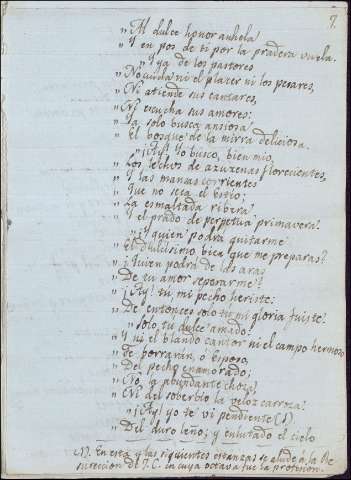 7.
" Al dulce honor anhela
" Y en pos de ti por la pradera vuela.
" Ya de los pastores
" No cuida ni el placer ni los pesares,
" Ni atiende sus cantares,
" Ni escucha sus amores:
" Ya solo busca ansiosa
" El bosque de la mirra deliciosa.
" ¡Ay! Yo busco, bien mio,
" Los lechos de azuzenas florecientes,
" Y las mansas corrientes
" Que no seca el Estio;
" La esmaltada ribera
" Y el prado de perpetua primavera.
" ¡Y quien podrá quitarme
" El dulcisimo bien que me preparas?
" ¿Quien podrá de las aras
" De tu amor separarme?
" ¡Ay! tu mi pecho heriste:
" De entonces solo tu mi gloria fuiste.
" Solo tu dulce amado:
" Y ni el blando cantor ni el campo hermoso
" Te borrarán, ó Esposo,
" Del pecho enamorado;
" No, la abundante choza,
" Ni del soberbio la veloz carroza.
" ¡Ay! yo te vi pendiente (1)
" Del duro leño; y enlutado el cielo
(1). En esta y las siguientes estanzas se alude á la Resurreccion de J.C. en cuya octava fue la profesion.